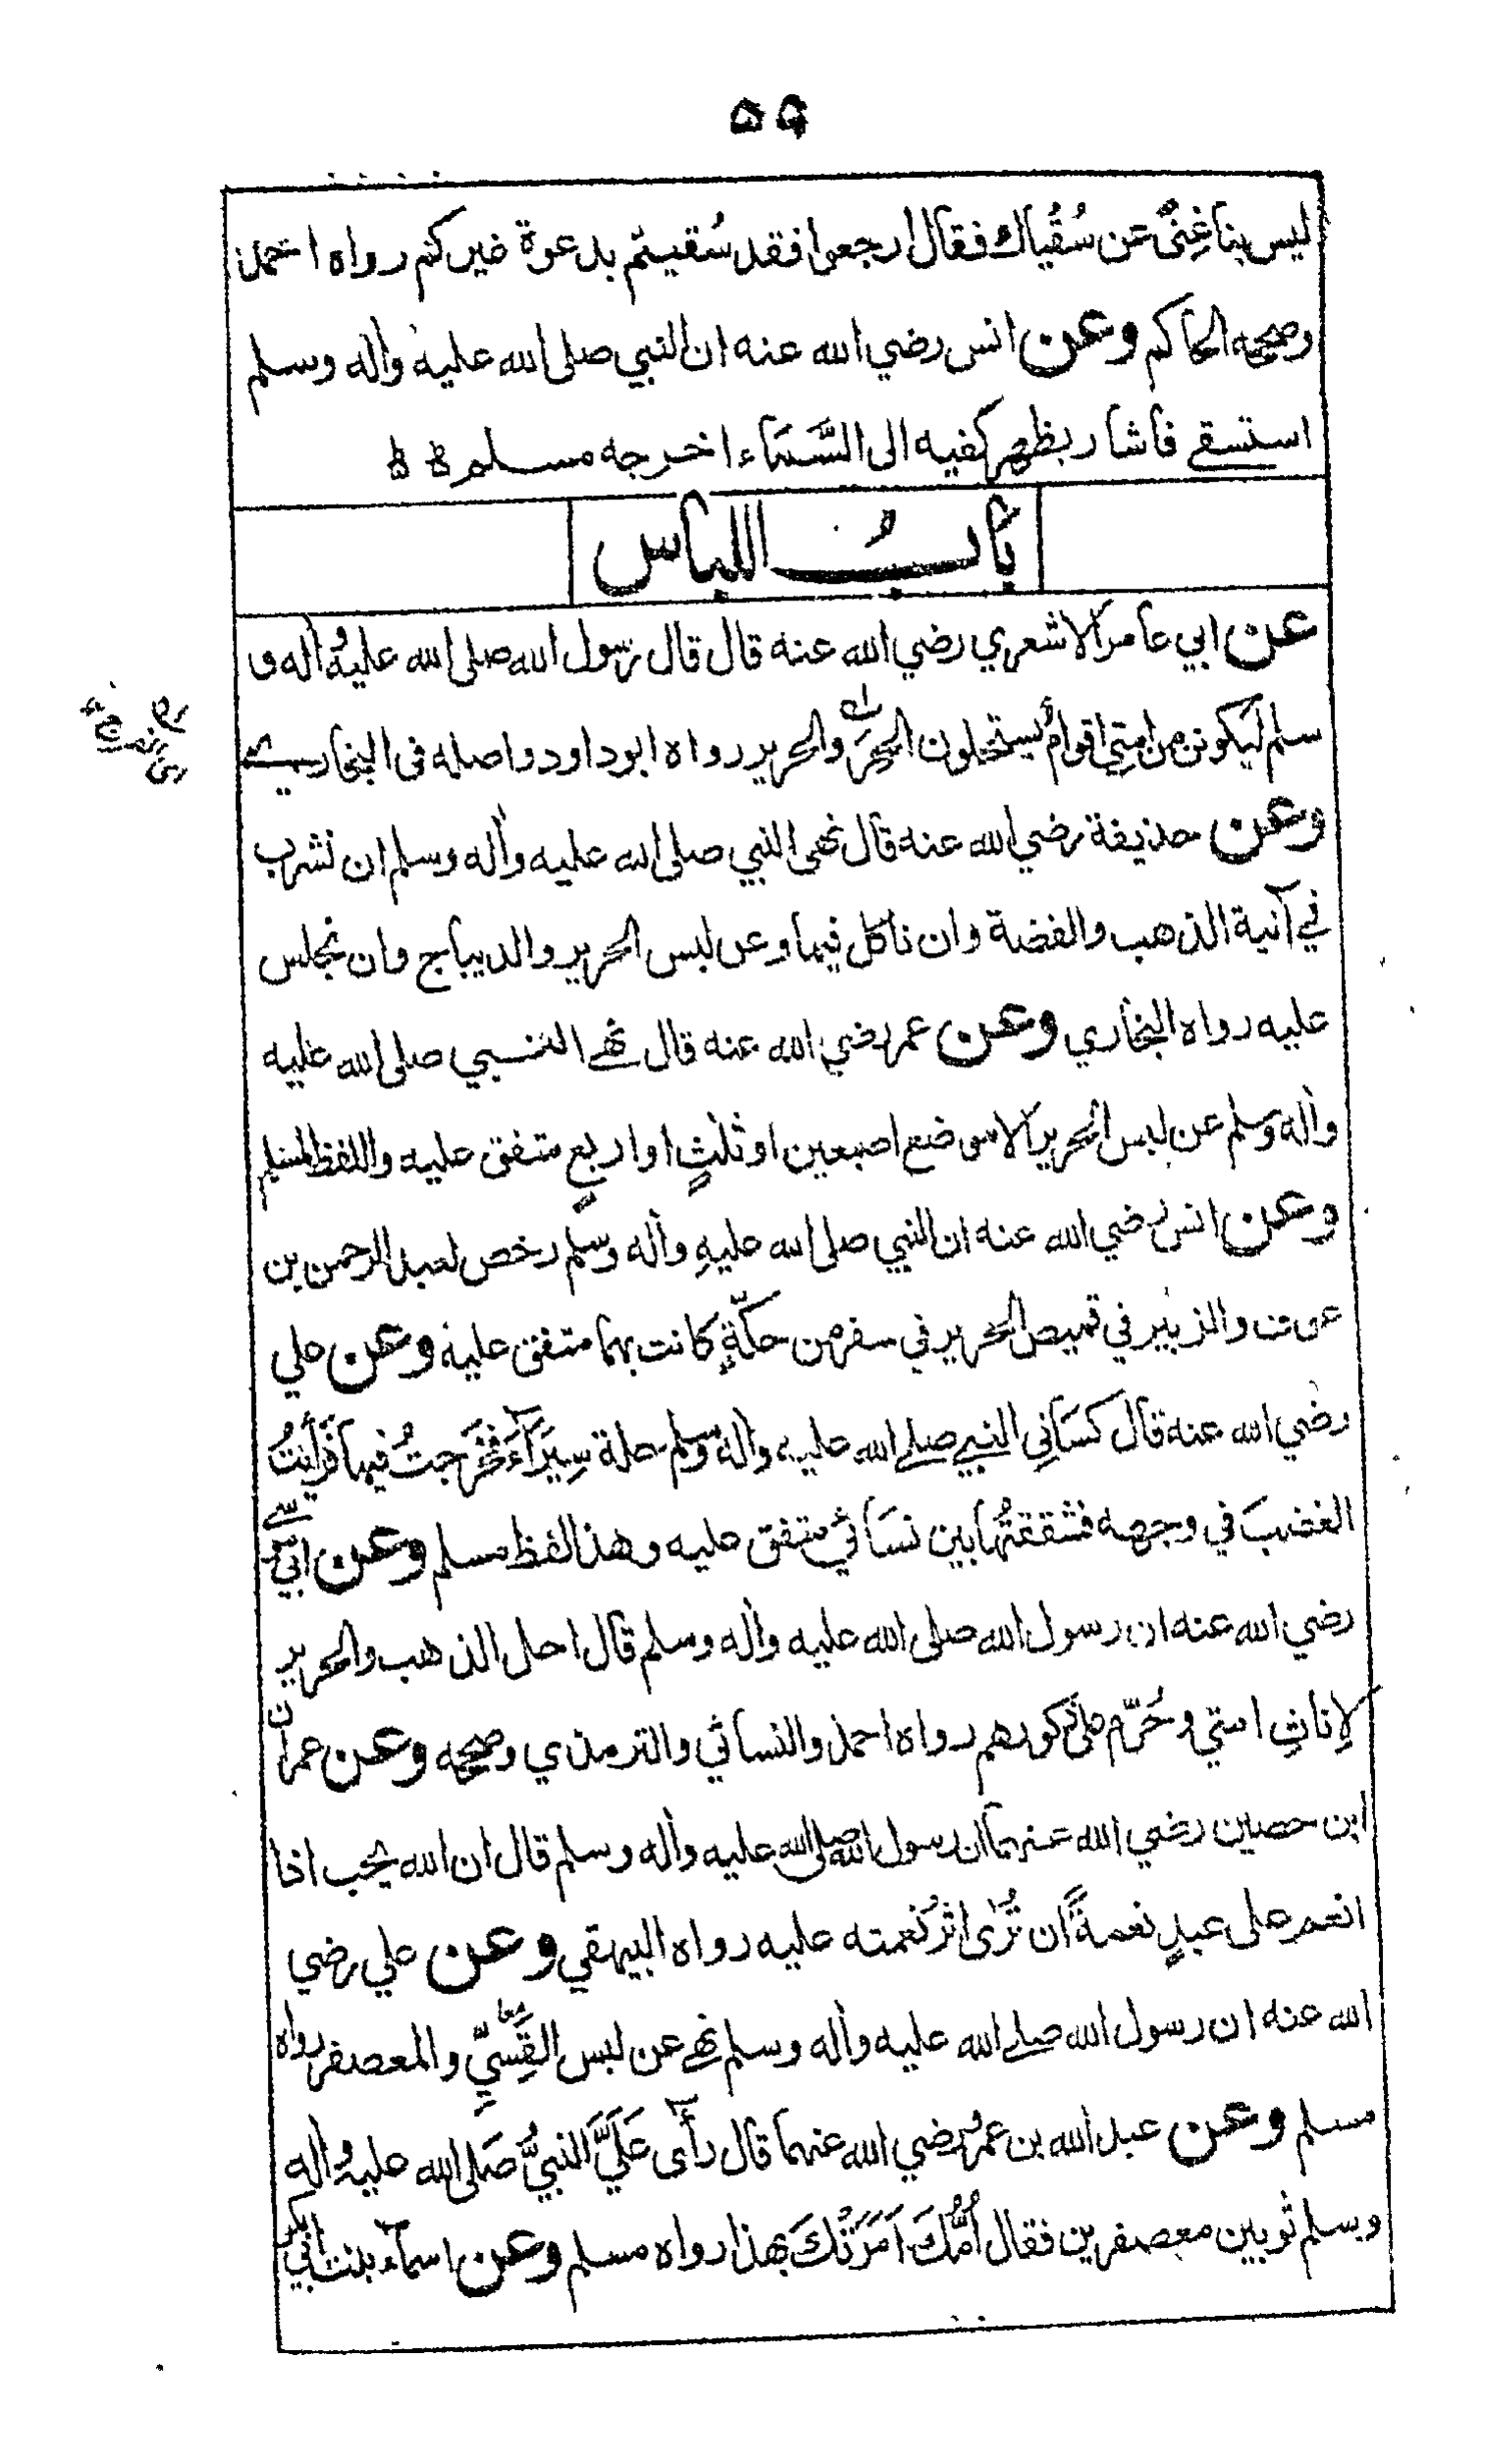 ٥٩
ليس بنا غِنًى عن سُقْياك فقال ارجعوا فقد سُقيتم بدعوة غيركم رواه احمد
وصححه الحاكم وعن انس رضي الله عنه ان النبي صلى الله عليه واٰله وسلم
استسقے فاشار بظهر كفيه الى السَّمَاء اخرجه مسلم
بابُ اللباس
عن ابي عامر الاشعري رضي الله عنه قال قال رسول الله صلى الله عليه واٰله و
سلم ليكونن من امتي اقوامٌ يستحلون الحِرَ والحرير رواه ابوداود واصله فى البخارے
وعن حذيفة رضي الله عنه قال نهى النبي صلى الله عليه واٰله وسلم ان نشرب
في آنية الذهب والفضة وان ناكل فيها وعن لبس الحرير والديباج وان نجلس
عليه رواه البخاري وعن عمر رضي الله عنه قال نهے النبي صلى الله عليه
واٰله وسلم عن لبس الحرير الا موضع اصبعين او ثلٰثٍ او اربعٍ متفق عليه واللفظ لمسلم
وعن انس رضي الله عنه ان النبي صلى الله عليهِ واٰله وسلم رخص لعبد الرحمن بن
عوف والزبير في قميص الحرير في سفر من حكّةٍ كانت بهما متفق عليه وعن علي
رضي الله عنه قال كسَانِي النبي صلے الله عليه واٰله وسلم حلة سِيَرَآءَ فخَرَجتُ فيها فرَأيتُ
الغضبَ في وجهه فشققتُها بين نسَائي متفق عليه وهذا لفظ مسلم وعن ابي موسے
رضي الله عنه ان رسول الله صلى الله عليه واٰله وسلم قال احل الذهب والحرير
لِاناثِ امتي وحُرّم على ذكورهم رواه احمد والنسائي والترمذي وصححه وعن عمران
ابن حصين رضي الله عنهما ان رسول الله صلى الله عليه واٰله وسلم قال ان الله يحب اذا
انعم على عبدٍ نعمةً ان تُرٰى اثرُ نعمته عليه رواه البيهقي وعن علي رضي
الله عنه ان رسول الله صلے الله عليه واٰله وسلم نهے عن لبس القَسِّيِّ والمعصفر رواه
مسلم وعن عبد الله بن عمرو رضي الله عنهما قال رآى عَلَيَّ النبيُّ صَلى الله عليه واٰله
وسلم ثوبين معصفرين فقال اُمُّكَ اَمَرَتْكَ بهذا رواه مسلم وعن اسمآء بنت ابي بكر